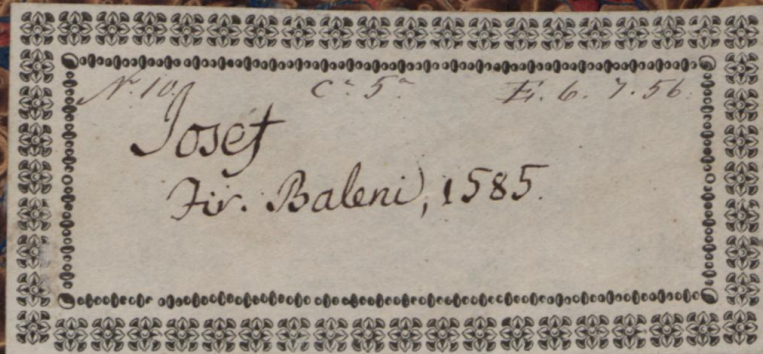 N. 10. Cª 5ª E. 6. 7. 56.
Josef
Fir. Baleni, 1585.